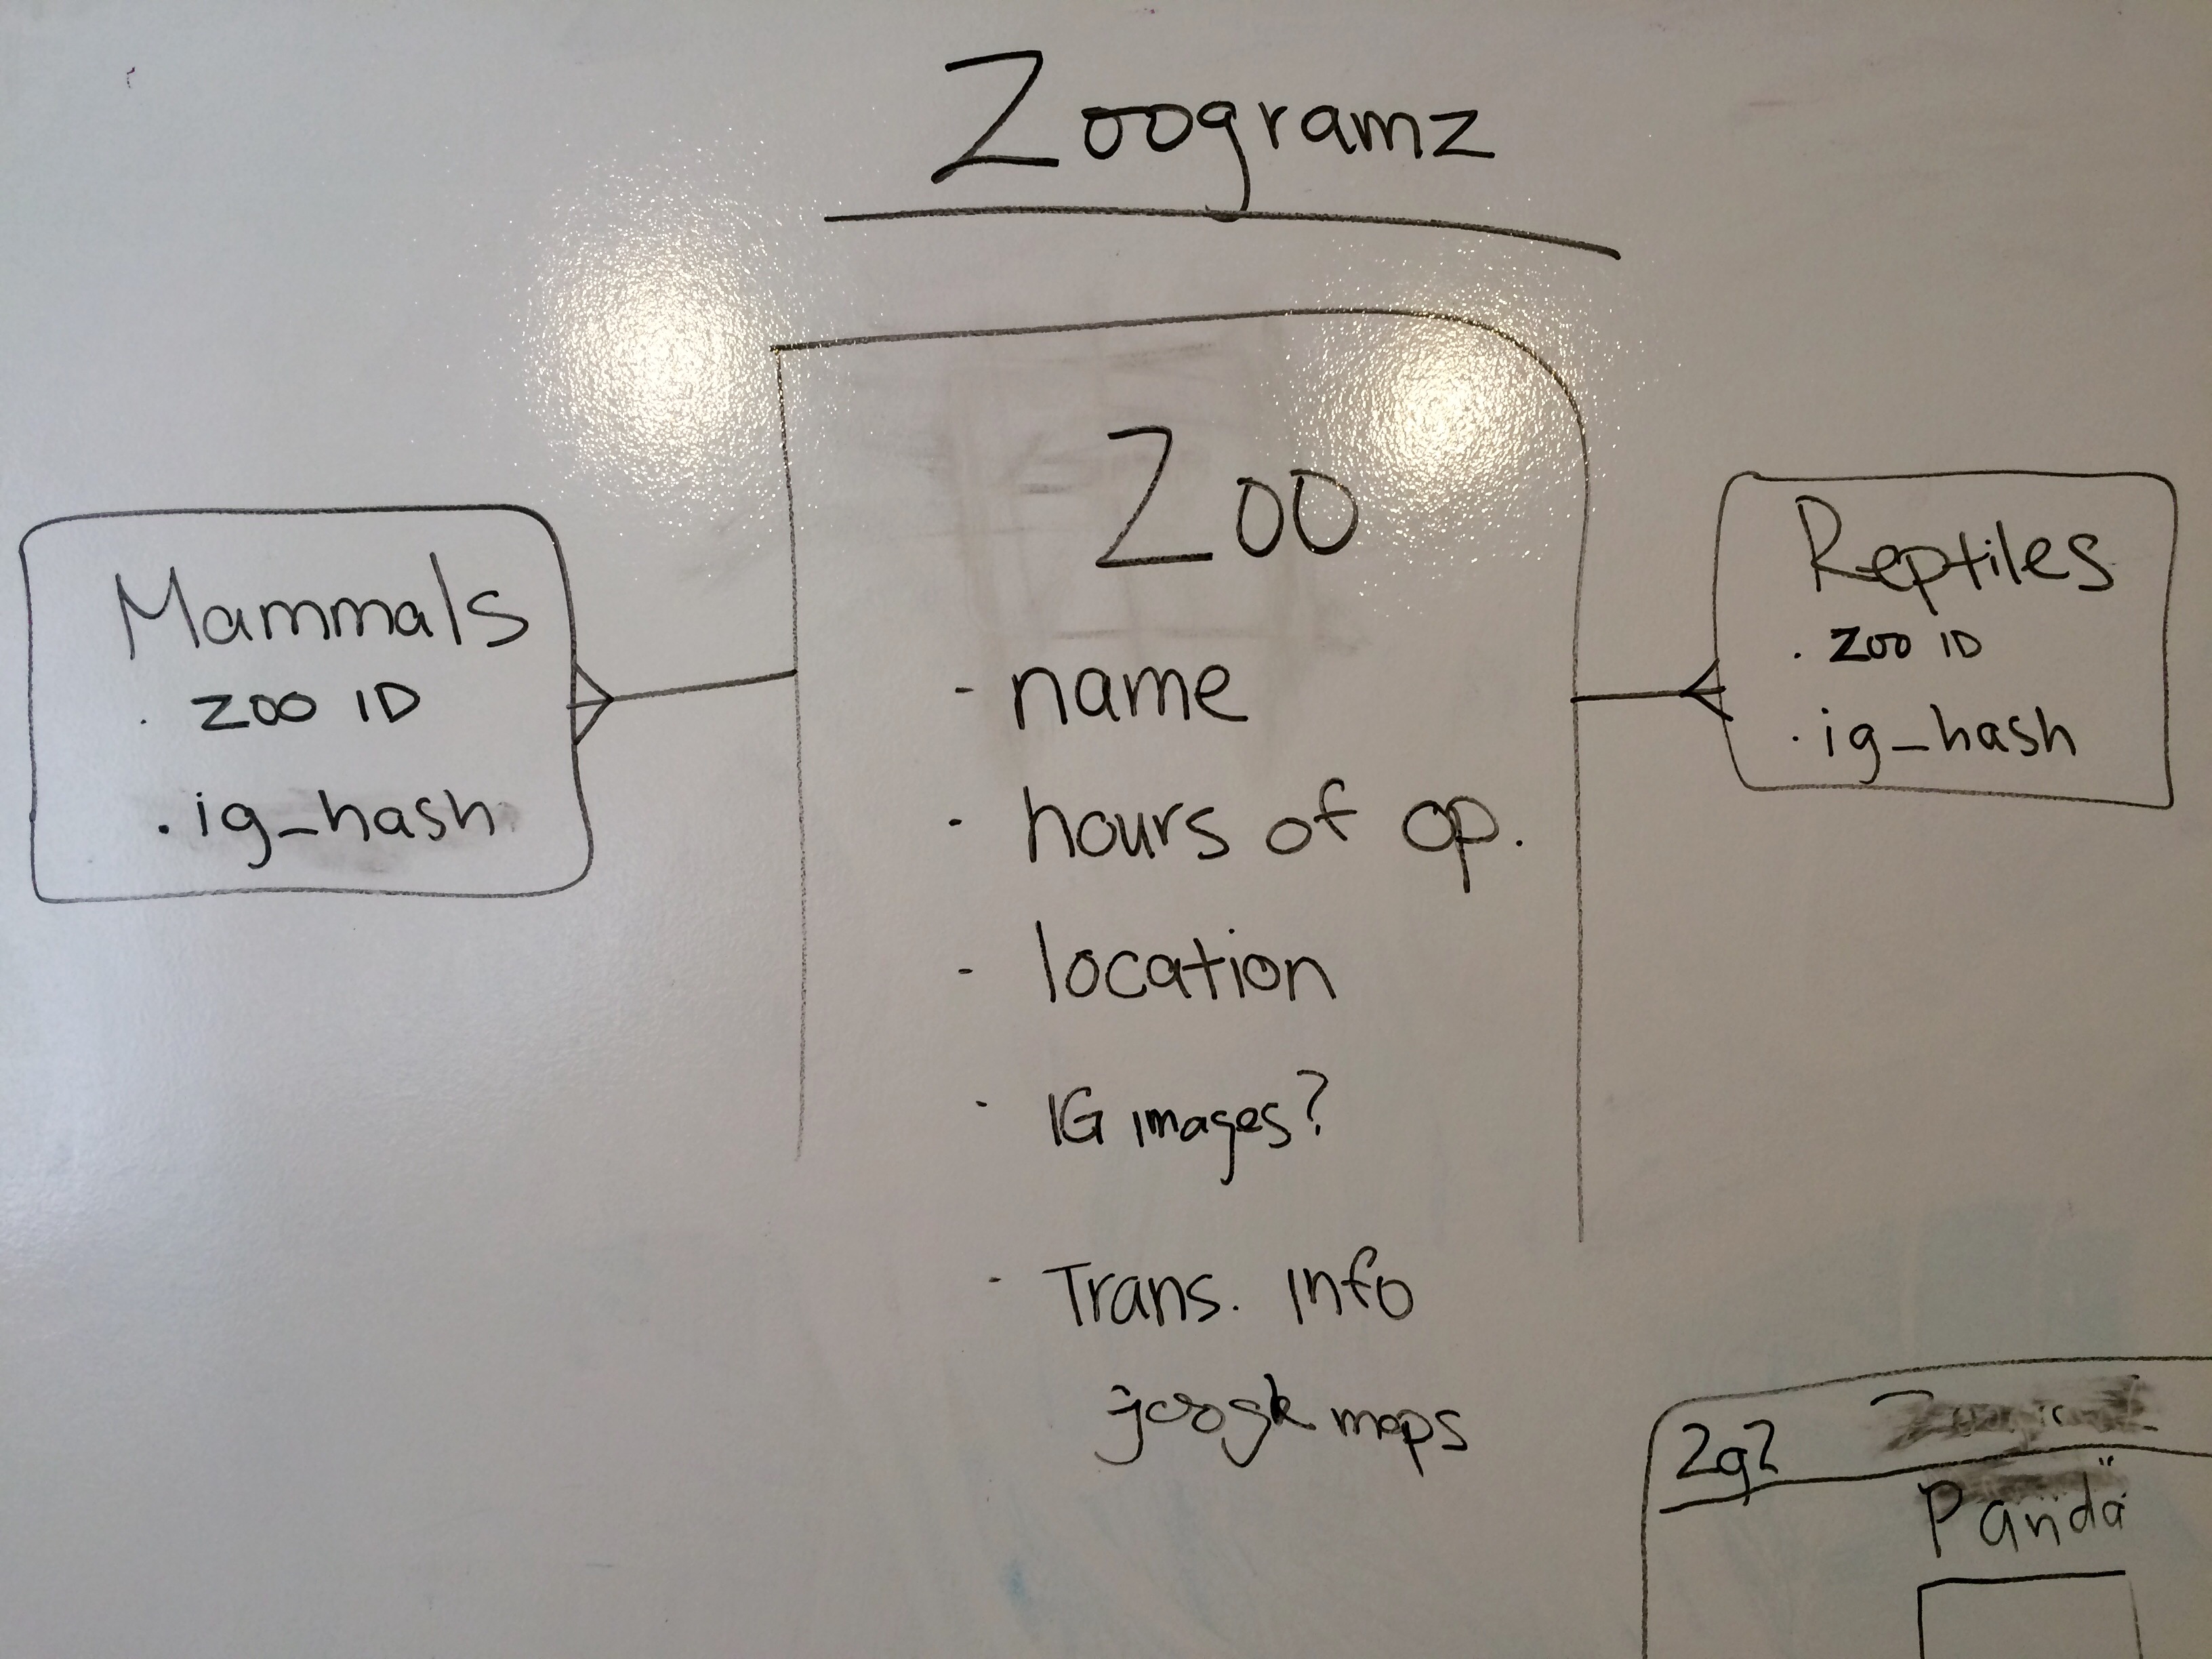 Zoogramz
Mammals
. ZOO ID
. ig_hash
Zoo
- name
- hours of op.
- location
- IG images?
- Trans. Info
google maps
Reptiles
. ZOO ID
. ig_hash
ZgZ
Panda